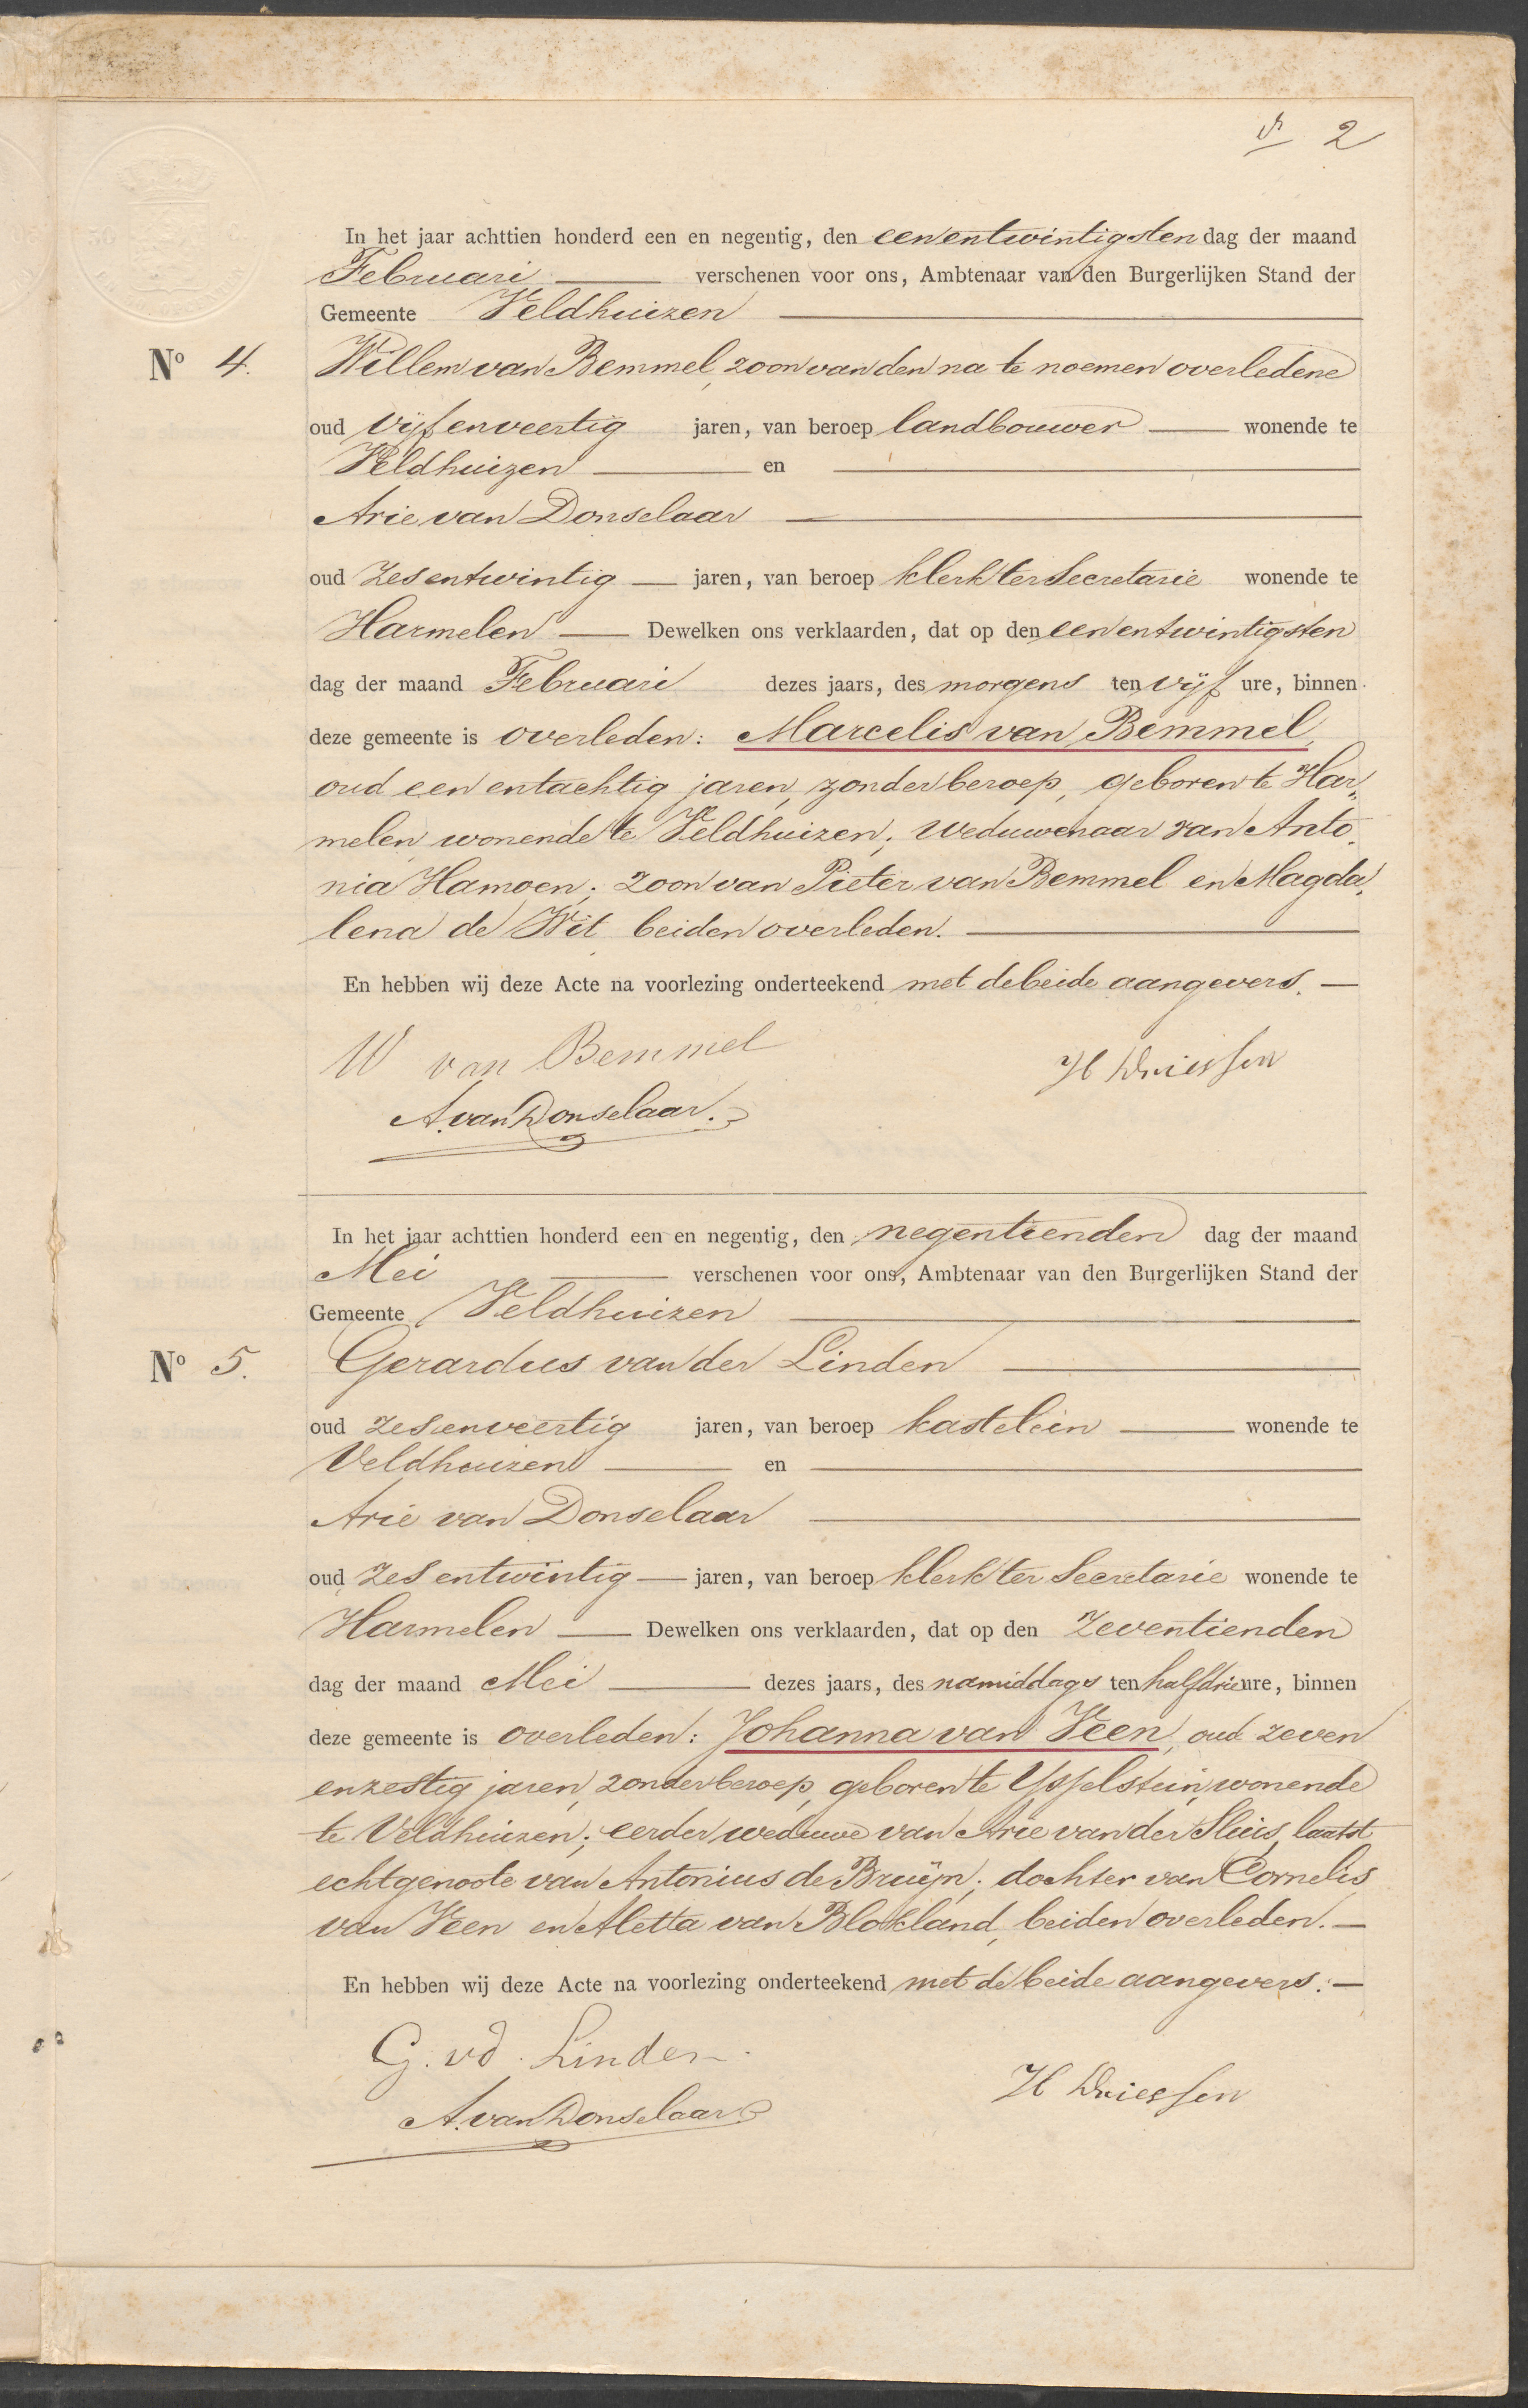 2
In het jaar achttien honderd een en negentig, den eenentwintigsten dag der maand
Februari verschenen voor ons, Ambtenaar van den Burgerlijken Stand der
Gemeente Veldhuizen
No 4. Willem van Bemmel, zoon van den na te noemen overledene
oud vijfenveertig jaren, van beroep landbouwer wonende te
Veldhuizen en
Arie van Donselaar
oud zesentwintig jaren, van beroep klerk ter Secretarie wonende te
Harmelen Dewelken ons verklaarden, dat op den eenentwintigsten
dag der maand Februari dezes jaars, des morgens ten vijf ure, binnen
deze gemeente is overleden: Marcelis van Bemmel,
oud een entachtig jaren, zonder beroep, geboren te Har„
melen wonende te Veldhuizen; weduwenaar van Anto„
nia Hamoen; zoon van Pieter van Bemmel en Magda„
lena de Wit beiden overleden.
En hebben wij deze Acte na voorlezing onderteekend met de beide aangevers.
W van Bemmel H Driessen
A. van Donselaar.
In het jaar achttien honderd een en negentig, den negentienden dag der maand
Mei verschenen voor ons, Ambtenaar van den Burgerlijken Stand der
Gemeente Veldhuizen
No 5. Gerardus van der Linden
oud zesenveertig jaren, van beroep kastelein wonende te
Veldhuizen en
Arie van Donselaar
oud zesentwintig jaren, van beroep klerk ter Secretarie wonende te
Harmelen Dewelken ons verklaarden, dat op den zeventienden
dag der maand Mei dezes jaars, des namiddags ten halfdrie ure, binnen
deze gemeente is overleden: Johanna van Veen, oud zeven
enzestig jaren, zonder beroep, geboren te Ysselstein, wonende
te Veldhuizen; eerder weduwe van Arie van der Sluis, laatst
echtgenoote van Antonius de Bruijn; dochter van Cornelis
van Veen en Aletta van Blokland, beiden overleden.
En hebben wij deze Acte na voorlezing onderteekend met de beide aangevers.
G. vd. Linden
H Driessen
A. van Donselaar